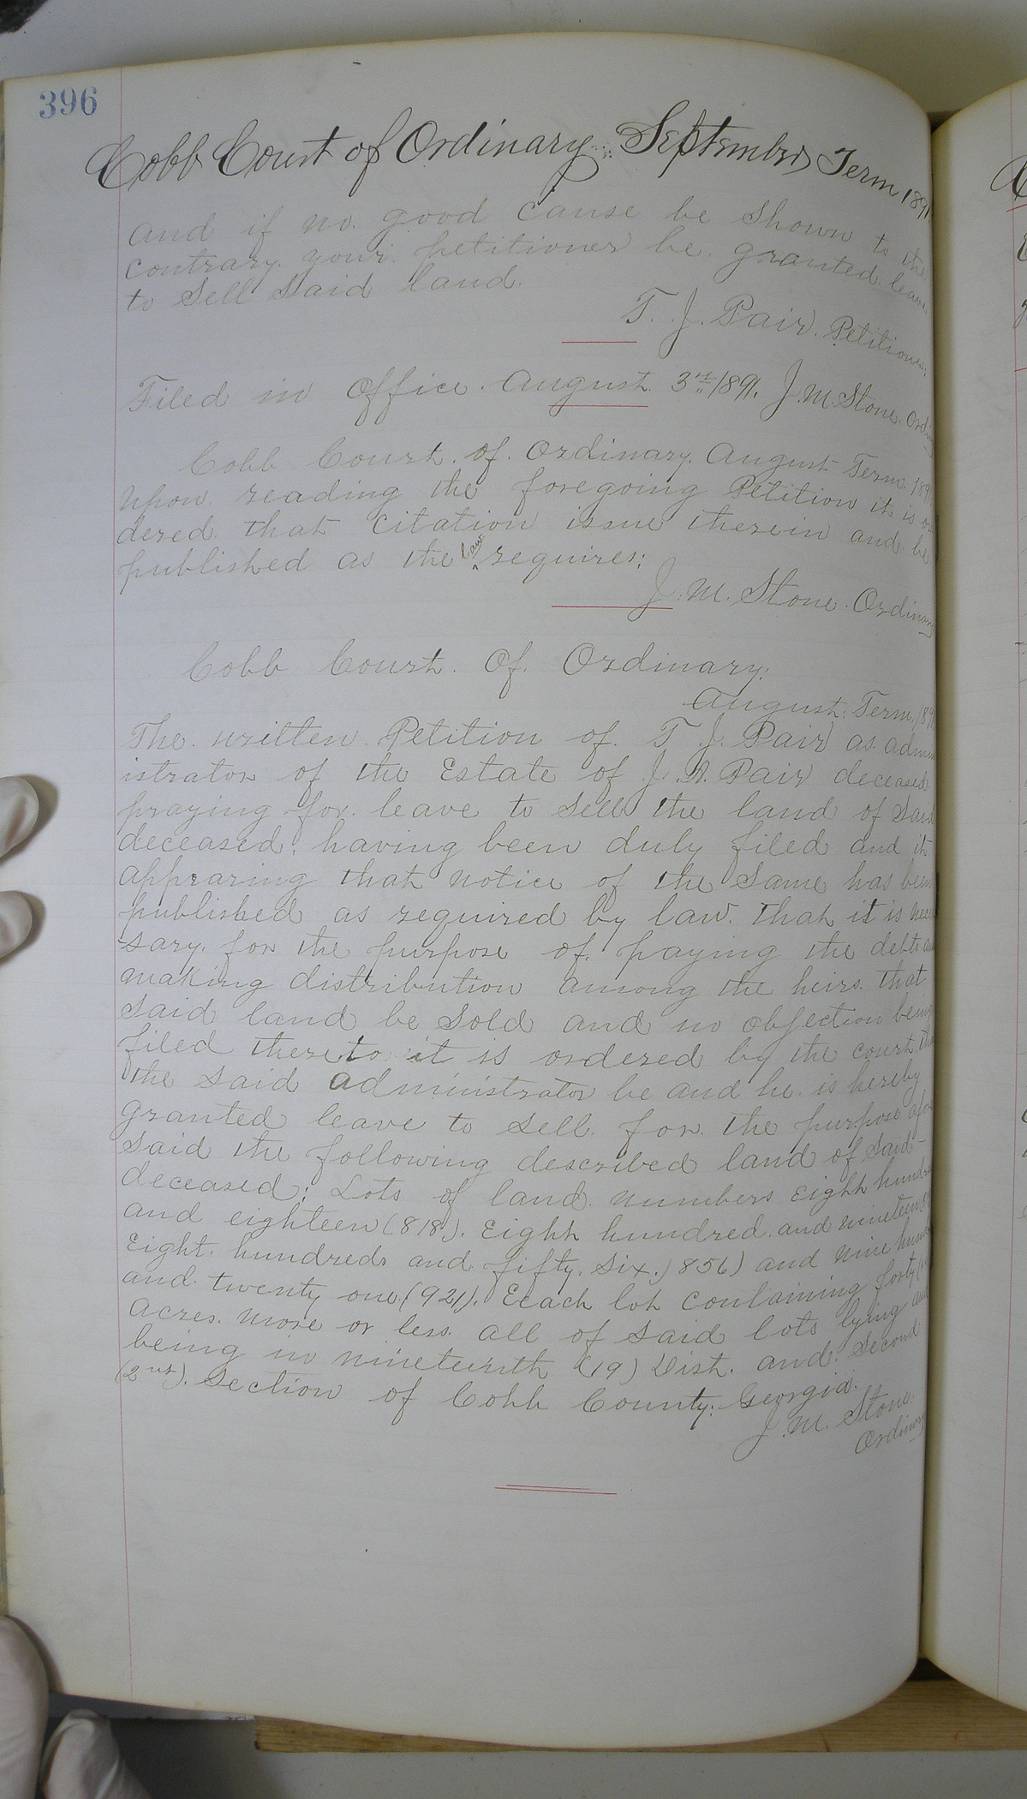 396
Cobb Court of Ordinary September Term 1891
and if no good cause be shown to the
contrary your petitioner be granted leave
to sell said land.
T. J. Pair. Petitioner
Filed in office. August 3rd 1891. J. M. Stone. Ord
Cobb Court. of. Ordinary. August Term 189
Upon reading the foregoing Petition it is or
dered that citation issue therein and be
published as the law requires:
J. M. Stone. Ordinary
Cobb Court. Of. Ordinary.
August. Term. 189
The written Petition of. T. J. Pair as admin
istrator of the Estate of J. A. Pair deceased
praying for leave to sell the land of said
deceased. having been duly filed and it
appearing that notice of the same has been
published as required by law. that it is neces
sary. for the purpose of. paying the debts and
making distribution among the heirs. that
said land be sold and no objection being
filed thereto it is ordered by the court. that
the said administrator be and he. is hereby
granted leave to sell. for the purpose afore
said the following described land of said
deceased: Lots of land. numbers eight hundred
and eighteen (818). eight hundred. and nineteen
Eight. hundred and fifty. six. 856) and nine hundred
and twenty one (921). Eeach lot containing forty
acres. more or less. all of said lots lying and
being in nineteenth (19) Dist. and. Second
(2nd). Section of Cobb County: Georgia.
J. M. Stone.
Ordinary